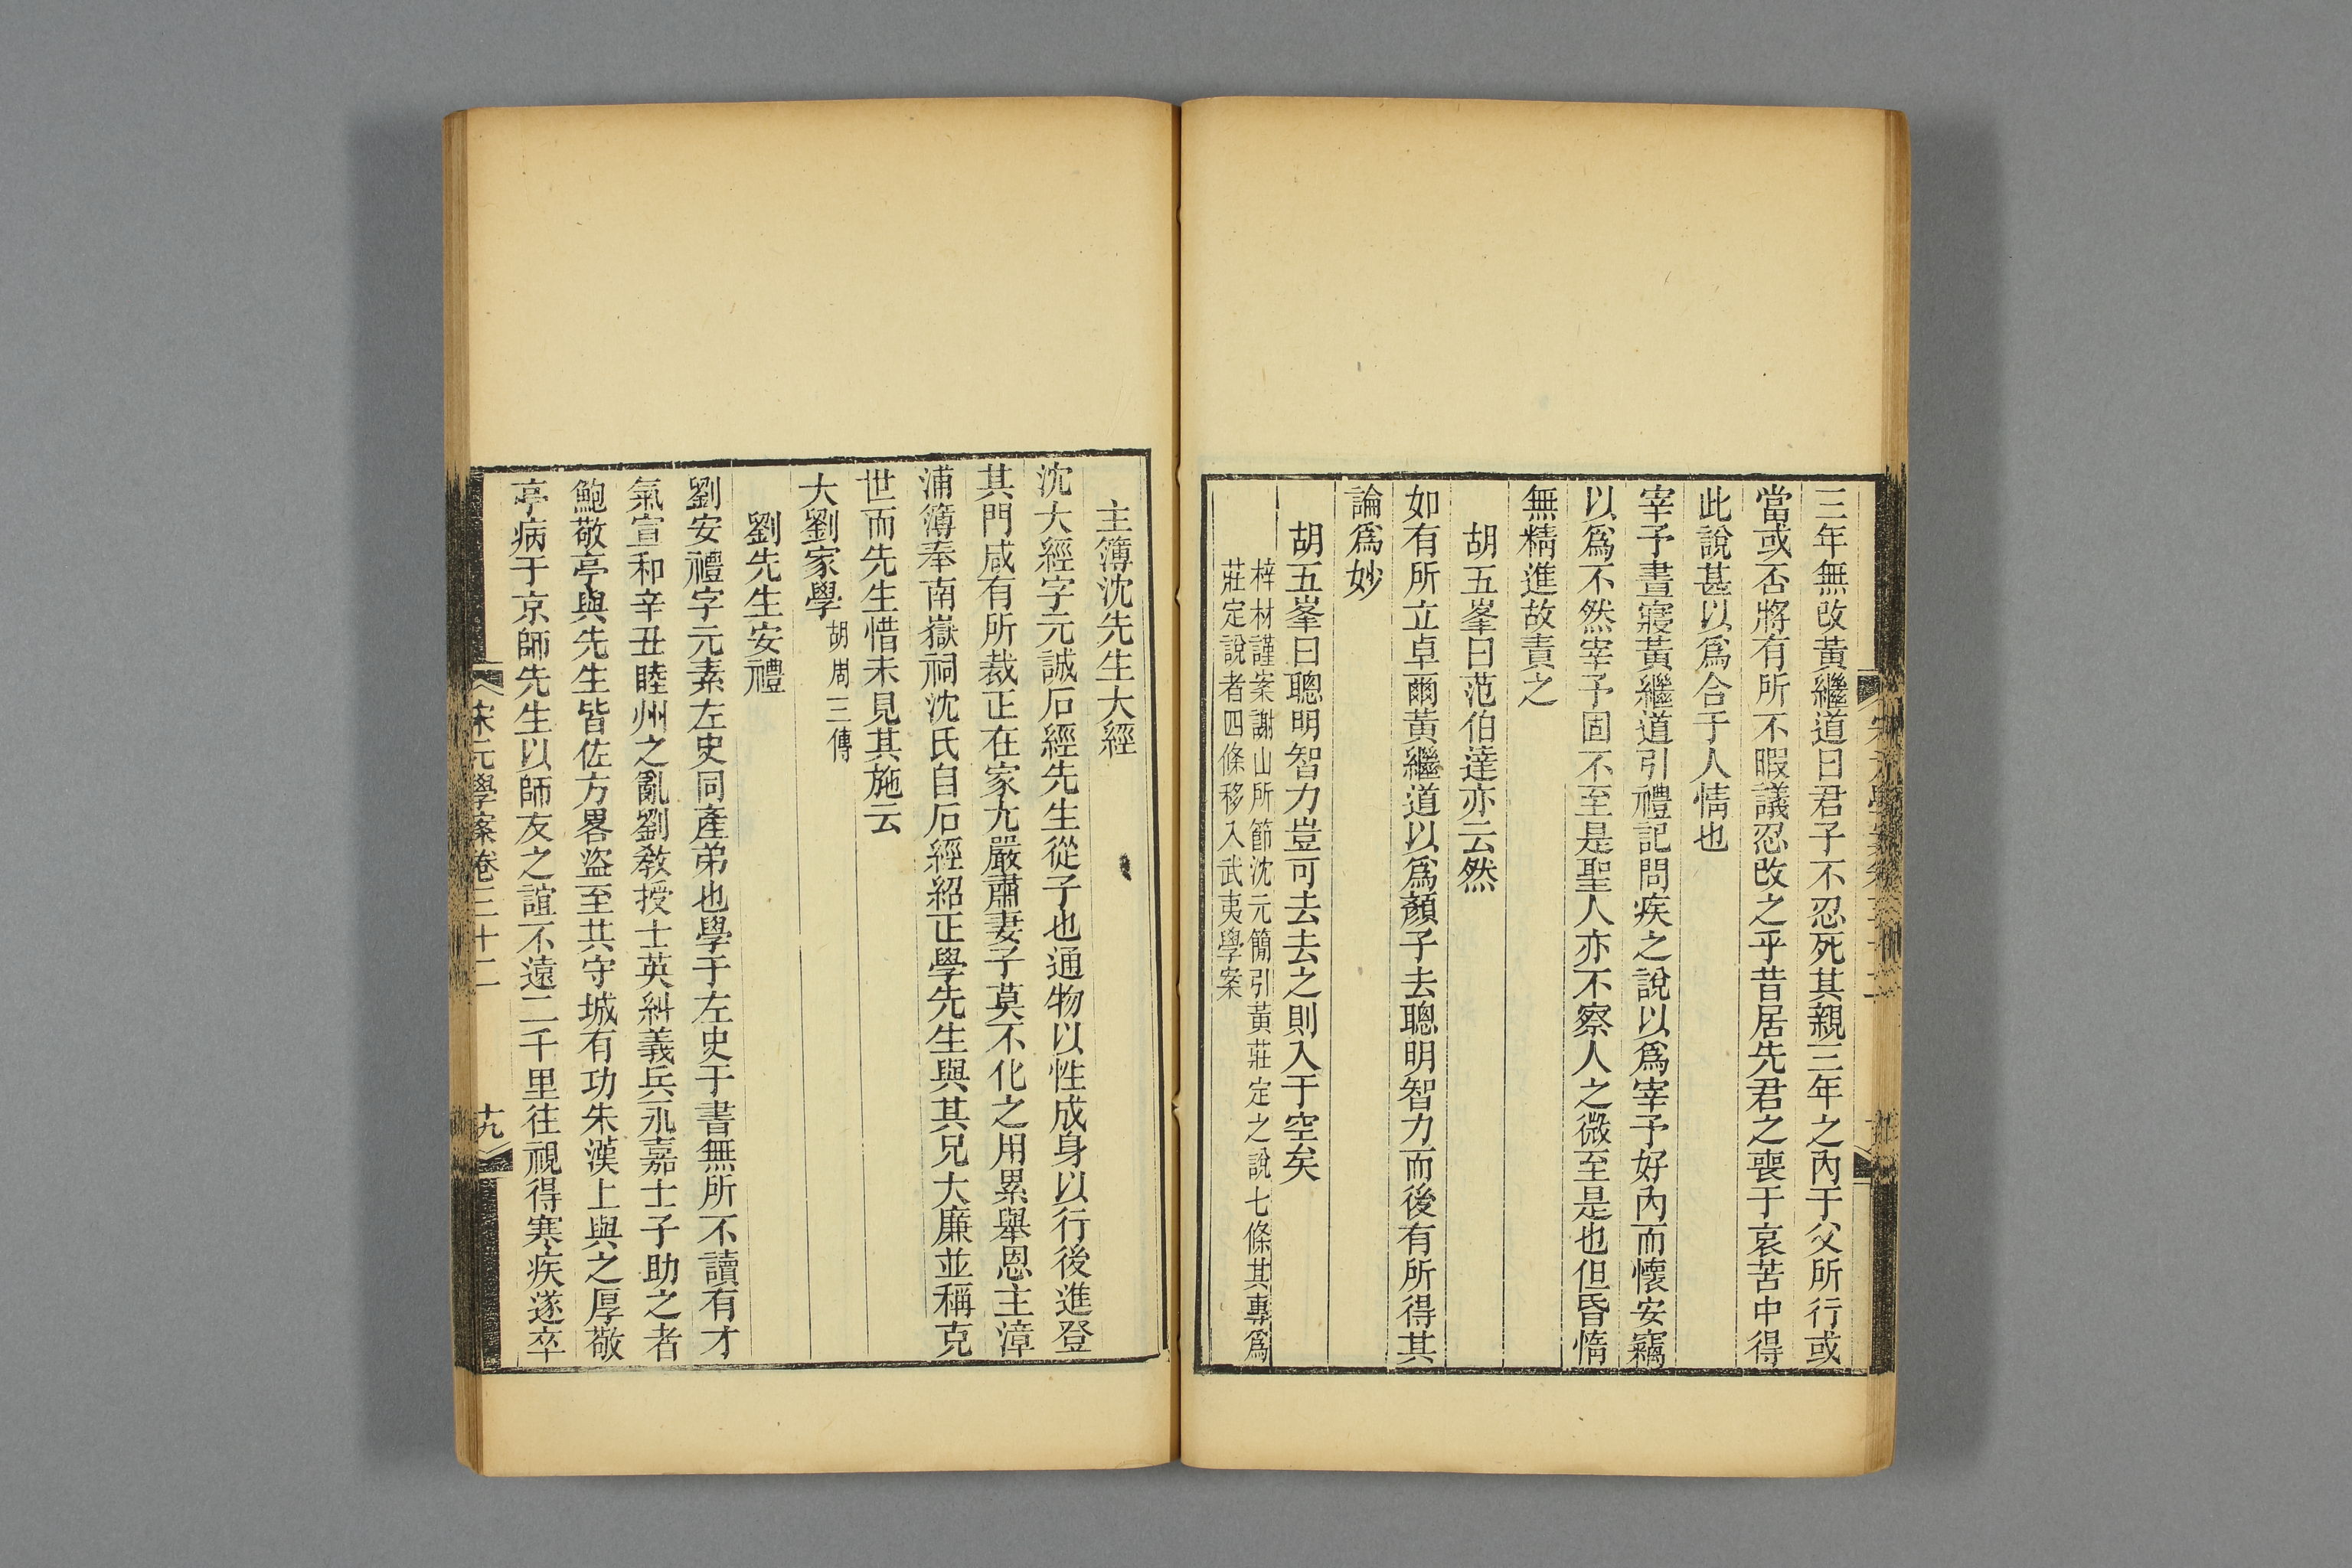 三年無改黃繼道曰君子不忍死其親三年之內于父所行或
當或否將有所不暇議忍改之乎昔居先君之喪于哀苦中得
此說甚以爲合于人情也
宰予晝寢黃繼道引禮記問疾之說以爲宰予好內而懷安竊
以爲不然宰予固不至是聖人亦不察人之微至是也但昏惰
無精進故責之
胡五峯曰范伯達亦云然
如有所立卓爾黃繼道以爲顏子去聰明智力而後有所得其
論爲妙
胡五峯曰聰明智力豈可去去之則入于空矣
梓材謹案謝山所節沈元簡引黃莊定之說七條其專爲
莊定說者四條移入武夷學案
主簿沈先生大經
沈大經字元誠石經先生從子也通物以性成身以行後進登
其門咸有所裁正在家尤嚴肅妻子莫不化之用累舉恩主漳
浦簿奉南嶽祠沈氏自石經紹正學先生與其兄大廉並稱克
世而先生惜未見其施云
大劉家學胡周三傳
劉先生安禮
劉安禮字元素左史同產弟也學于左史于書無所不讀有才
氣宣和辛丑睦州之亂劉教授士英糾義兵永嘉士子助之者
鮑敬亭與先生皆佐方畧盜至共守城有功朱漢上與之厚敬
亭病于京師先生以師友之誼不遠二千里往視得寒疾遂卒
宋元學案卷三十二
十九